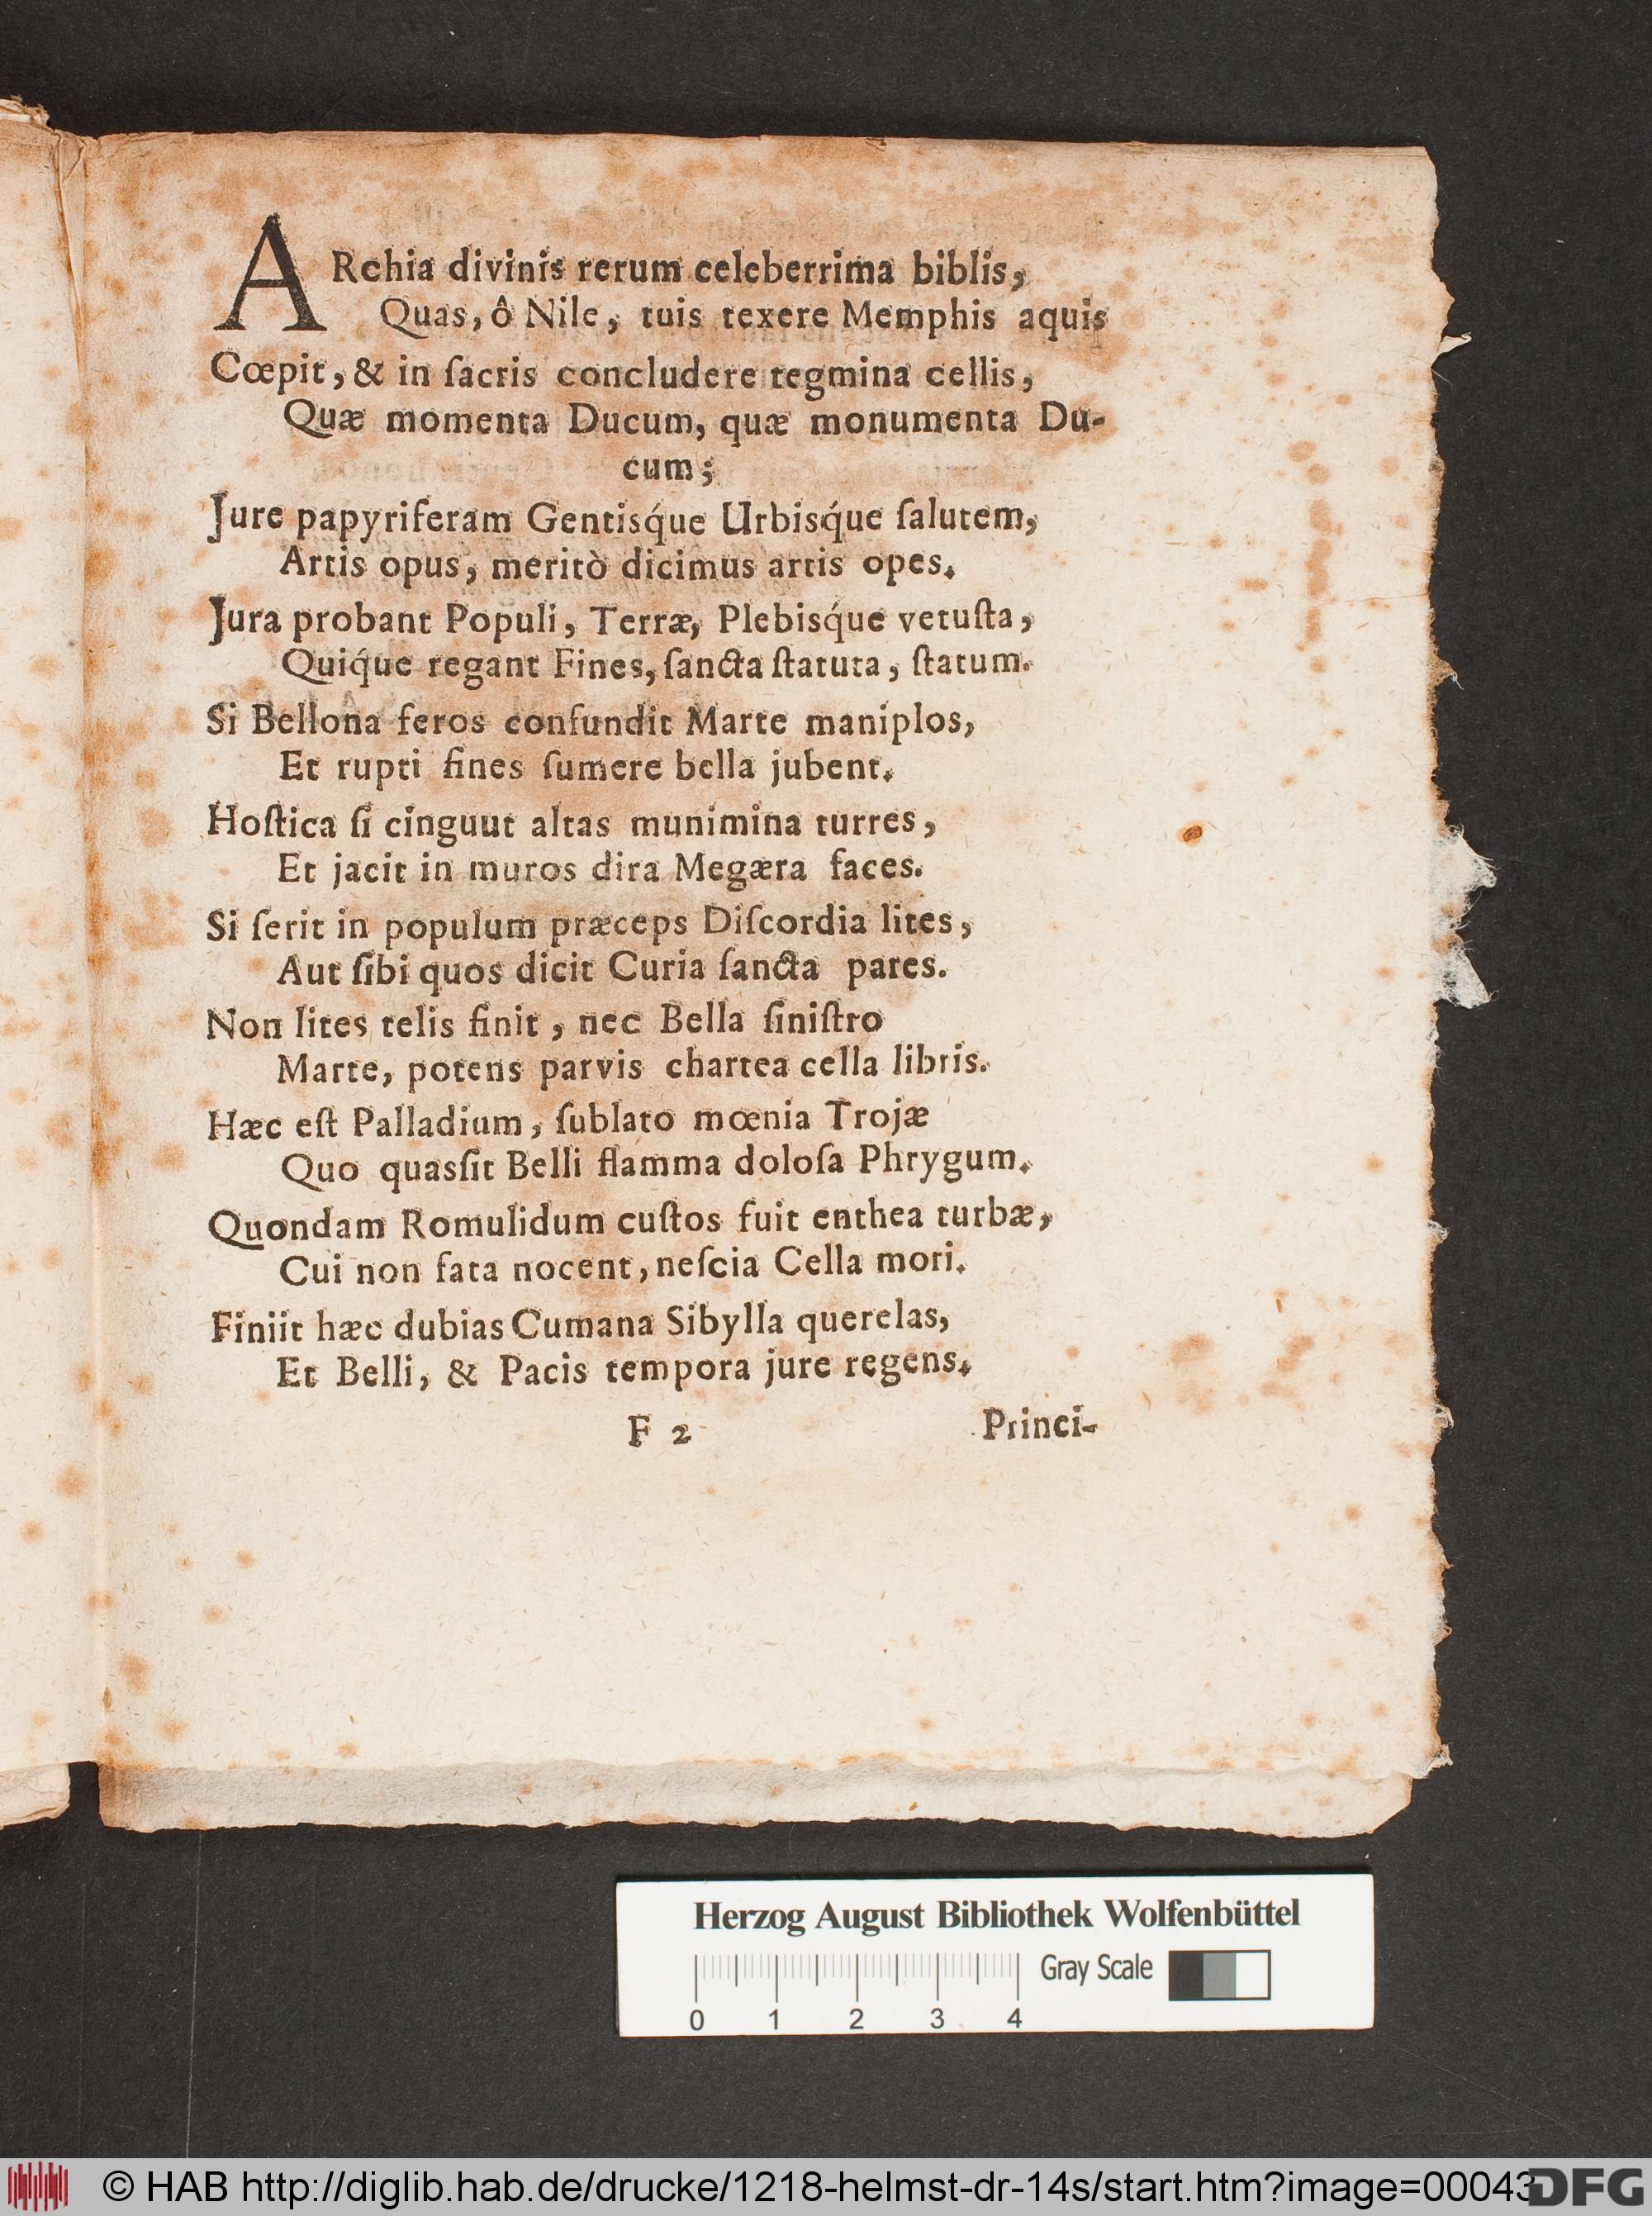 ARchia divinis rerum celeberrima biblis,
Quas, ô Nile, tuis texere Memphis aquis
Cœpit, & in ſacris concludere tegmina cellis,
Quæ momenta Ducum, quæ monumenta Du-
cum;
Jure papyriferam Gentisq́ue Urbisq́ue ſalutem,
Artis opus, meritò dicimus artis opes.
Jura probant Populi, Terræ, Plebisq́ue vetuſta,
Quiq́ue regant Fines, ſancta ſtatuta, ſtatum.
Si Bellona feros confundit Marte maniplos,
Et rupti fines ſumere bella jubent.
Hoſtica ſi cinguut altas munimina turres,
Et jacit in muros dira Megæra faces.
Si ſerit in populum præceps Diſcordia lites,
Aut ſibi quos dicit Curia ſancta pares.
Non lites telis finit, nec Bella ſiniſtro
Marte, potens parvis chartea cella libris.
Hæc eſt Palladium, ſublato mœnia Trojæ
Quo quasſit Belli flamma doloſa Phrygum.
Quondam Romulidum cuſtos fuit enthea turbæ,
Cui non fata nocent, neſcia Cella mori.
Finiit hæc dubias Cumana Sibylla querelas,
Et Belli, & Pacis tempora jure regens.
F 2 Princi-
Herzog August Bibliothek Wolfenbüttel
Gray Scale
0 1 2 3 4
© HAB http://diglib.hab.de/drucke/1218-helmst-dr-14s/start.htm?image=00043
DFG